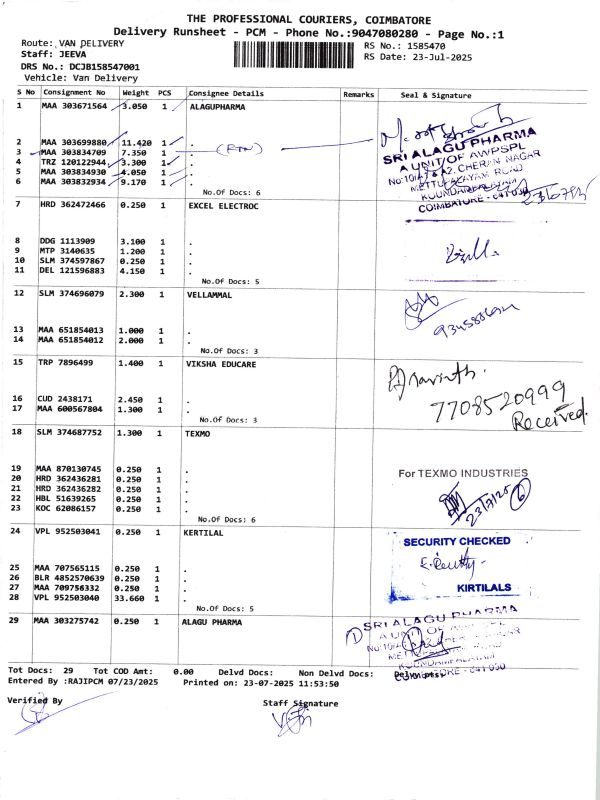 THE PROFESSIONAL COURIERS, COIMBATORE
Delivery Runsheet - PCM - Phone No.:9047080280 - Page No.:1
Route: VAN DELIVERY
Staff: JEEVA
DRS No.: DCJB158547001
Vehicle: Van Delivery
RS No.: 1585470
RS Date: 23-Jul-2025
S No Consignment No Weight PCS Consignee Details Remarks Seal & Signature
1 MAA 303671564 3.050 1 ALAGUPHARMA
2 MAA 303699880 11.420 1 .
3 MAA 303834709 7.350 1 .
4 TRZ 120122944 3.300 1 .
5 MAA 303834930 4.050 1 .
6 MAA 303832934 9.170 1 .
No.Of Docs: 6
(RTN)
SRI ALAGU PHARMA
A UNIT OF AWPSPL
CHERAN NAGAR
METTUPALAYAM ROAD
KOUNDAMPALAYAM
COIMBATORE - 641 030
7 HRD 362472466 0.250 1 EXCEL ELECTROC
8 DDG 1113909 3.100 1 .
9 MTP 3140635 1.200 1 .
10 SLM 374597867 0.250 1 .
11 DEL 121596883 4.150 1 .
No.Of Docs: 5
12 SLM 374696079 2.300 1 VELLAMMAL
13 MAA 651854013 1.000 1 .
14 MAA 651854012 2.000 1 .
No.Of Docs: 3
15 TRP 7896499 1.400 1 VIKSHA EDUCARE
16 CUD 2438171 2.450 1 .
17 MAA 600567804 1.300 1 .
No.Of Docs: 3
7708520999
Received.
18 SLM 374687752 1.300 1 TEXMO
19 MAA 870130745 0.250 1 .
20 HRD 362436281 0.250 1 .
21 HRD 362436282 0.250 1 .
22 HBL 51639265 0.250 1 .
23 KOC 62086157 0.250 1 .
No.Of Docs: 6
For TEXMO INDUSTRIES
23/7/25 6
24 VPL 952503041 0.250 1 KERTILAL
25 MAA 707565115 0.250 1 .
26 BLR 4852570639 0.250 1 .
27 MAA 709756332 0.250 1 .
28 VPL 952503040 33.660 1 .
No.Of Docs: 5
SECURITY CHECKED
KIRTILALS
29 MAA 303275742 0.250 1 ALAGU PHARMA
1
SRI ALAGU PHARMA
A UNIT OF
KOUNDAMPALAYAM
COIMBATORE - 641 030
Tot Docs: 29 Tot COD Amt: 0.00 Delvd Docs: Non Delvd Docs:
Entered By :RAJIPCM 07/23/2025 Printed on: 23-07-2025 11:53:50
Verified By
Staff Signature